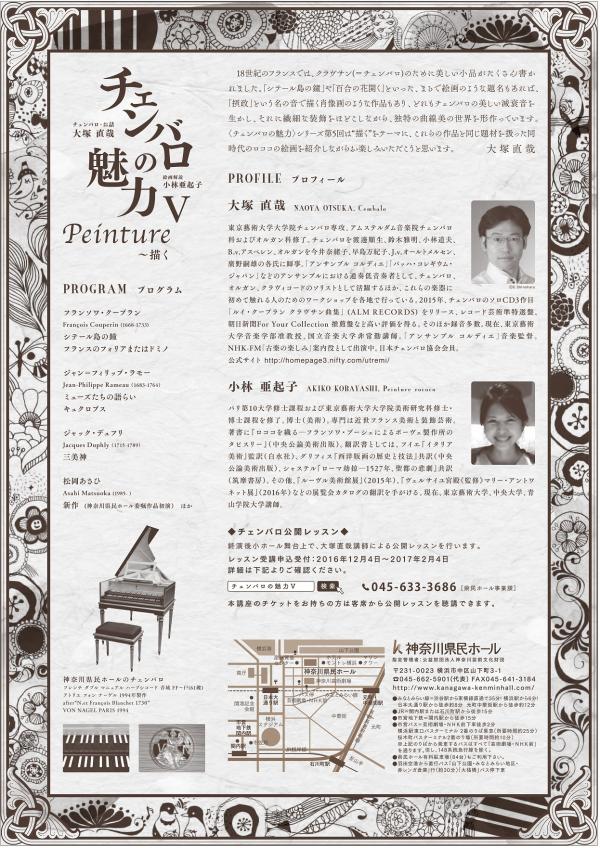 チェンバロの魅力 V
チェンバロ・お話
大塚 直哉
絵画解説
小林亜起子
Peinture
～描く
18世紀のフランスでは、クラヴサン(=チェンバロ)のために美しい小品がたくさん書か
れました。「シテール島の鐘」や「百合の花開く」といった、まるで絵画のような題名もあれば、
「摂政」という名の音で描く肖像画のような作品もあり、どれもチェンバロの美しい減衰音を
生かし、それに繊細な装飾をほどこしながら、独特の曲線美の世界を形作っています。
〈チェンバロの魅力〉シリーズ第5回は“描く”をテーマに、これらの作品と同じ題材を扱った同
時代のロココの絵画を紹介しながらお楽しみいただこうと思います。 大塚直哉
PROGRAM プログラム
フランソワ・クープラン
François Couperin (1668-1733)
シテール島の鐘
フランスのフォリアまたはドミノ
ジャン=フィリップ・ラモー
Jean-Philippe Rameau (1683-1764)
ミューズたちの語らい
キュクロプス
ジャック・デュフリ
Jacques Duphly (1715-1789)
三美神
松岡あさひ
Asahi Matsuoka (1985- )
新作 (神奈川県民ホール委嘱作品初演) ほか
PROFILE プロフィール
大塚 直哉 NAOYA OTSUKA, Cembalo
東京藝術大学大学院チェンバロ専攻、アムステルダム音楽院チェンバロ
科およびオルガン科修了。チェンバロを渡邊順生、鈴木雅明、小林道夫、
B.v.アスペレン、オルガンを今井奈緒子、早島万紀子、J.v.オールトメルセン、
廣野嗣雄の各氏に師事。「アンサンブル コルディエ」「バッハ・コレギウム・
ジャパン」などのアンサンブルにおける通奏低音奏者として、チェンバロ、
オルガン、クラヴィコードのソリストとして活躍するほか、これらの楽器に
初めて触れる人のためのワークショップを各地で行っている。2015年、チェンバロのソロCD3作目
「ルイ・クープラン クラヴサン曲集」(ALM RECORDS) をリリース、レコード芸術準特選盤、
朝日新聞For Your Collection 推薦盤など高い評価を得る。そのほか録音多数。現在、東京藝術
大学音楽学部准教授、国立音楽大学非常勤講師。「アンサンブル コルディエ」音楽監督。
NHK-FM「古楽の楽しみ」案内役として出演中。日本チェンバロ協会会員。
公式サイト http://homepage3.nifty.com/utremi/
小林 亜起子 AKIKO KOBAYASHI, Peinture rococo
パリ第10大学修士課程および東京藝術大学大学院美術研究科修士・
博士課程を修了。博士(美術)。専門は近世フランス美術と装飾芸術。
著書に『ロココを織る―フランソワ・ブーシェによるボーヴェ製作所の
タピスリー』(中央公論美術出版)、翻訳書としては、フイエ『イタリア
美術』監訳(白水社)、グリフィス『西洋版画の歴史と技法』共訳(中央
公論美術出版)、シャステル『ローマ劫掠―1527年、聖都の悲劇』共訳
(筑摩書房)、その他、「ルーヴル美術館展」(2015年)、「ヴェルサイユ宮殿《監修》マリー・アントワ
ネット展」(2016年)などの展覧会カタログの翻訳を手がける。現在、東京藝術大学、中央大学、青
山学院大学講師。
◆チェンバロ公開レッスン◆
終演後小ホール舞台上で、大塚直哉講師による公開レッスンを行います。
レッスン受講申込受付:2016年12月4日～2017年2月4日
詳細は下記よりご確認ください。
チェンバロの魅力V 検索
045-633-3686 [県民ホール事業課]
本講座のチケットをお持ちの方は客席から公開レッスンを聴講できます。
神奈川県民ホールのチェンバロ
フレンチ ダブル マニュアル ハープシコード 音域 FF～f³(61鍵)
アトリエ フォン ナーゲル 1994年製作
after"N.et François Blanchet 1730"
VON NAGEL PARIS 1994
横浜港
山下公園
県庁
横浜スタジアム
中華街
元町
関内駅
石川町駅
神奈川県民ホール
指定管理者:公益財団法人神奈川芸術文化財団
〒231-0023 横浜市中区山下町3-1
045-662-5901(代表) FAX045-641-3184
http://www.kanagawa-kenminhall.com/
●みなとみらい線=渋谷駅から東横線直通で35分(横浜駅から6分)
日本大通り駅から徒歩約6分 元町中華街駅から徒歩約12分
●JR=関内駅または石川町駅から徒歩15分
●市営地下鉄=関内駅から徒歩約15分
●市営バス=芸術劇場・NHK前下車徒歩2分